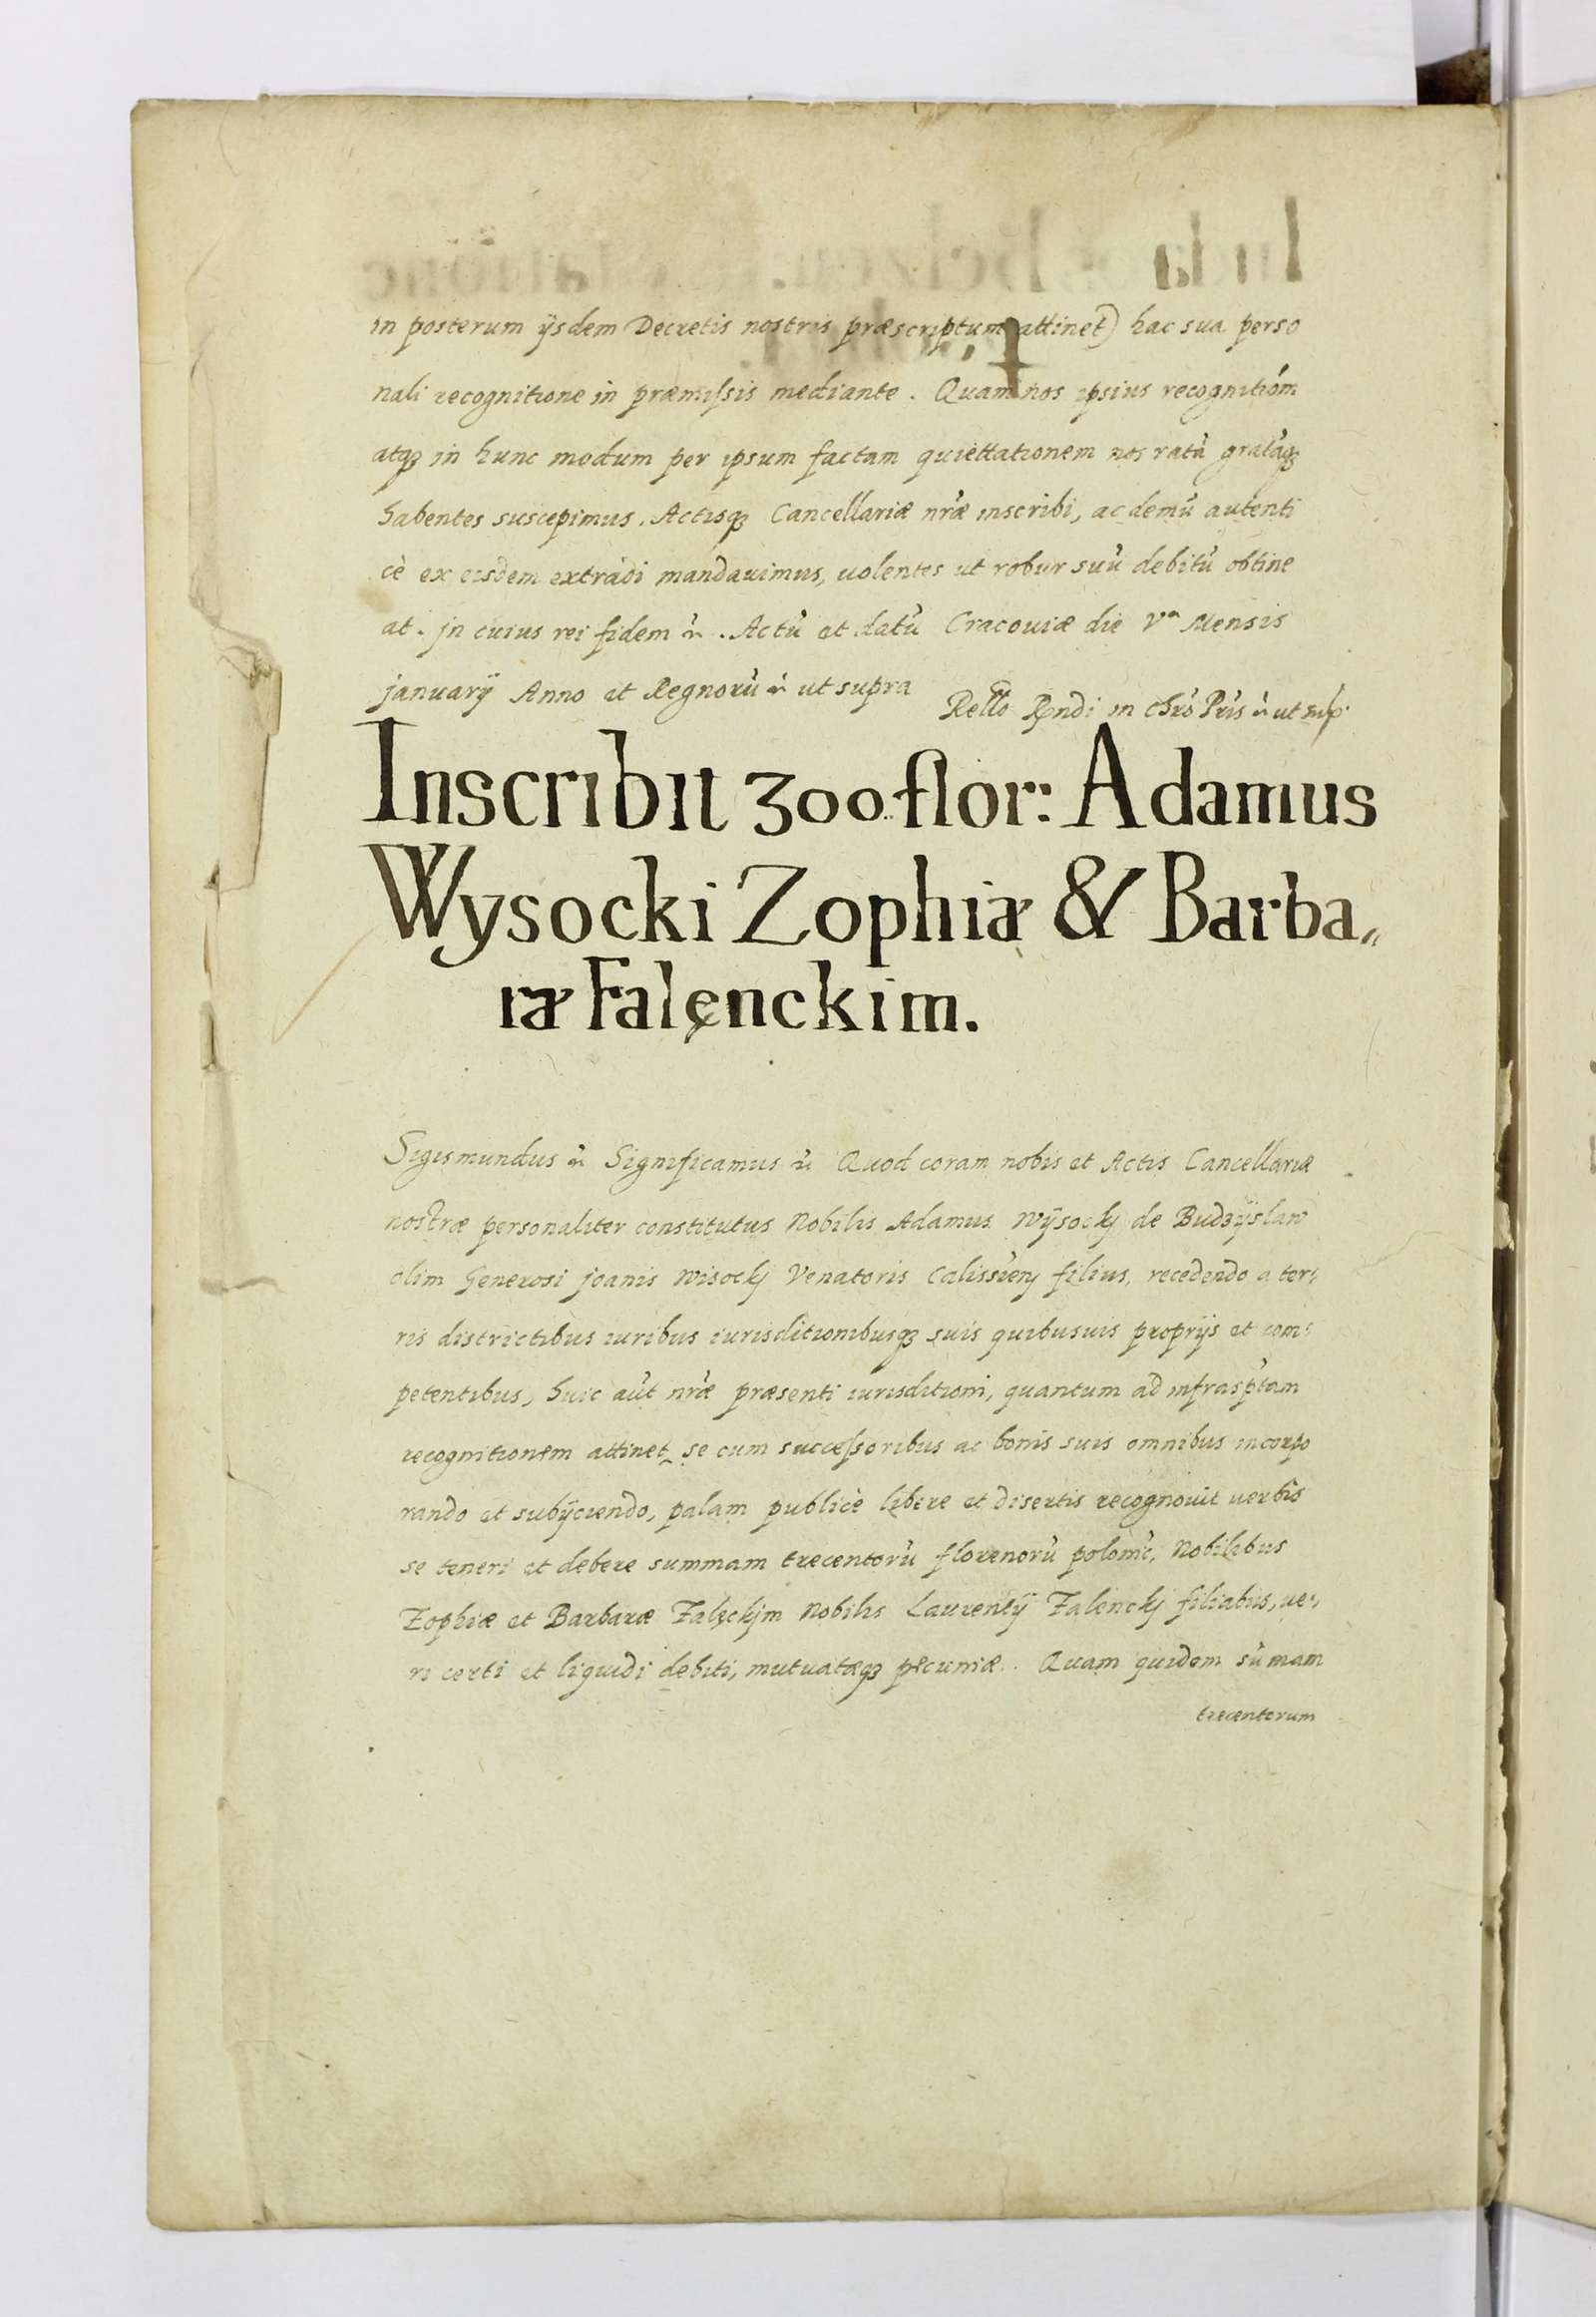 in posterum ijsdem Decretis nostris præscriptum attinet) hac sua perso
nali recognitione in præmissis mediante. Quam nos ipsius recognitiom̃
atqȝ in hunc modum per ipsum factam quiettationem nos ratũ gratũqȝ
habentes suscepimus. Actisqȝ Cancellariæ nr̃æ inscribi, ac demũ autenti
cè ex eisdem extradi mandauimus, uolentes ut robur suũ debitũ obtine
at. jn cuius rei fidem ẽ. Actũ et datũ Cracouiæ die Vª Mensis
januarij Anno et Regnorũ ẽ ut supra
Rello Rṇdi in Chrõ Pris ẽ ut sup.
Inscribit 300 flor: Adamus
Wysocki Zophiæ & Barba„
ræ Falęnckim.
Sigismundus ẽ Significamus ẽ Quod coram nobis et Actis Cancellariæ
nostræ personaliter constitutus Nobilis Adamus Wÿsockj de Budzÿslaw
olim Generosi joanis Wisockj Venatoris Calissieñ filius, recedendo a ter:
ris districtibus iuribus iurisditionibusqȝ suis quibusuis proprijs et com:
petentibus, huic aũt nr̃æ præsenti iurisditioni, quantum ad infrasp̃tam
recognitionem attinet se cum successoribus ac bonis suis omnibus incorpo
rando et subijciendo, palam publicè libere et disertis recognouit uerbis
se teneri et debere summam trecentorũ florenorũ polonic̃, Nobilibus
Zophiæ et Barbaræ Falęckjm Nobilis Laurentij Falenckj filiabus, ue:
ri certi et liquidi debiti, mutuatæqȝ pecuniæ. Quam quidem sũmam
trecentorum